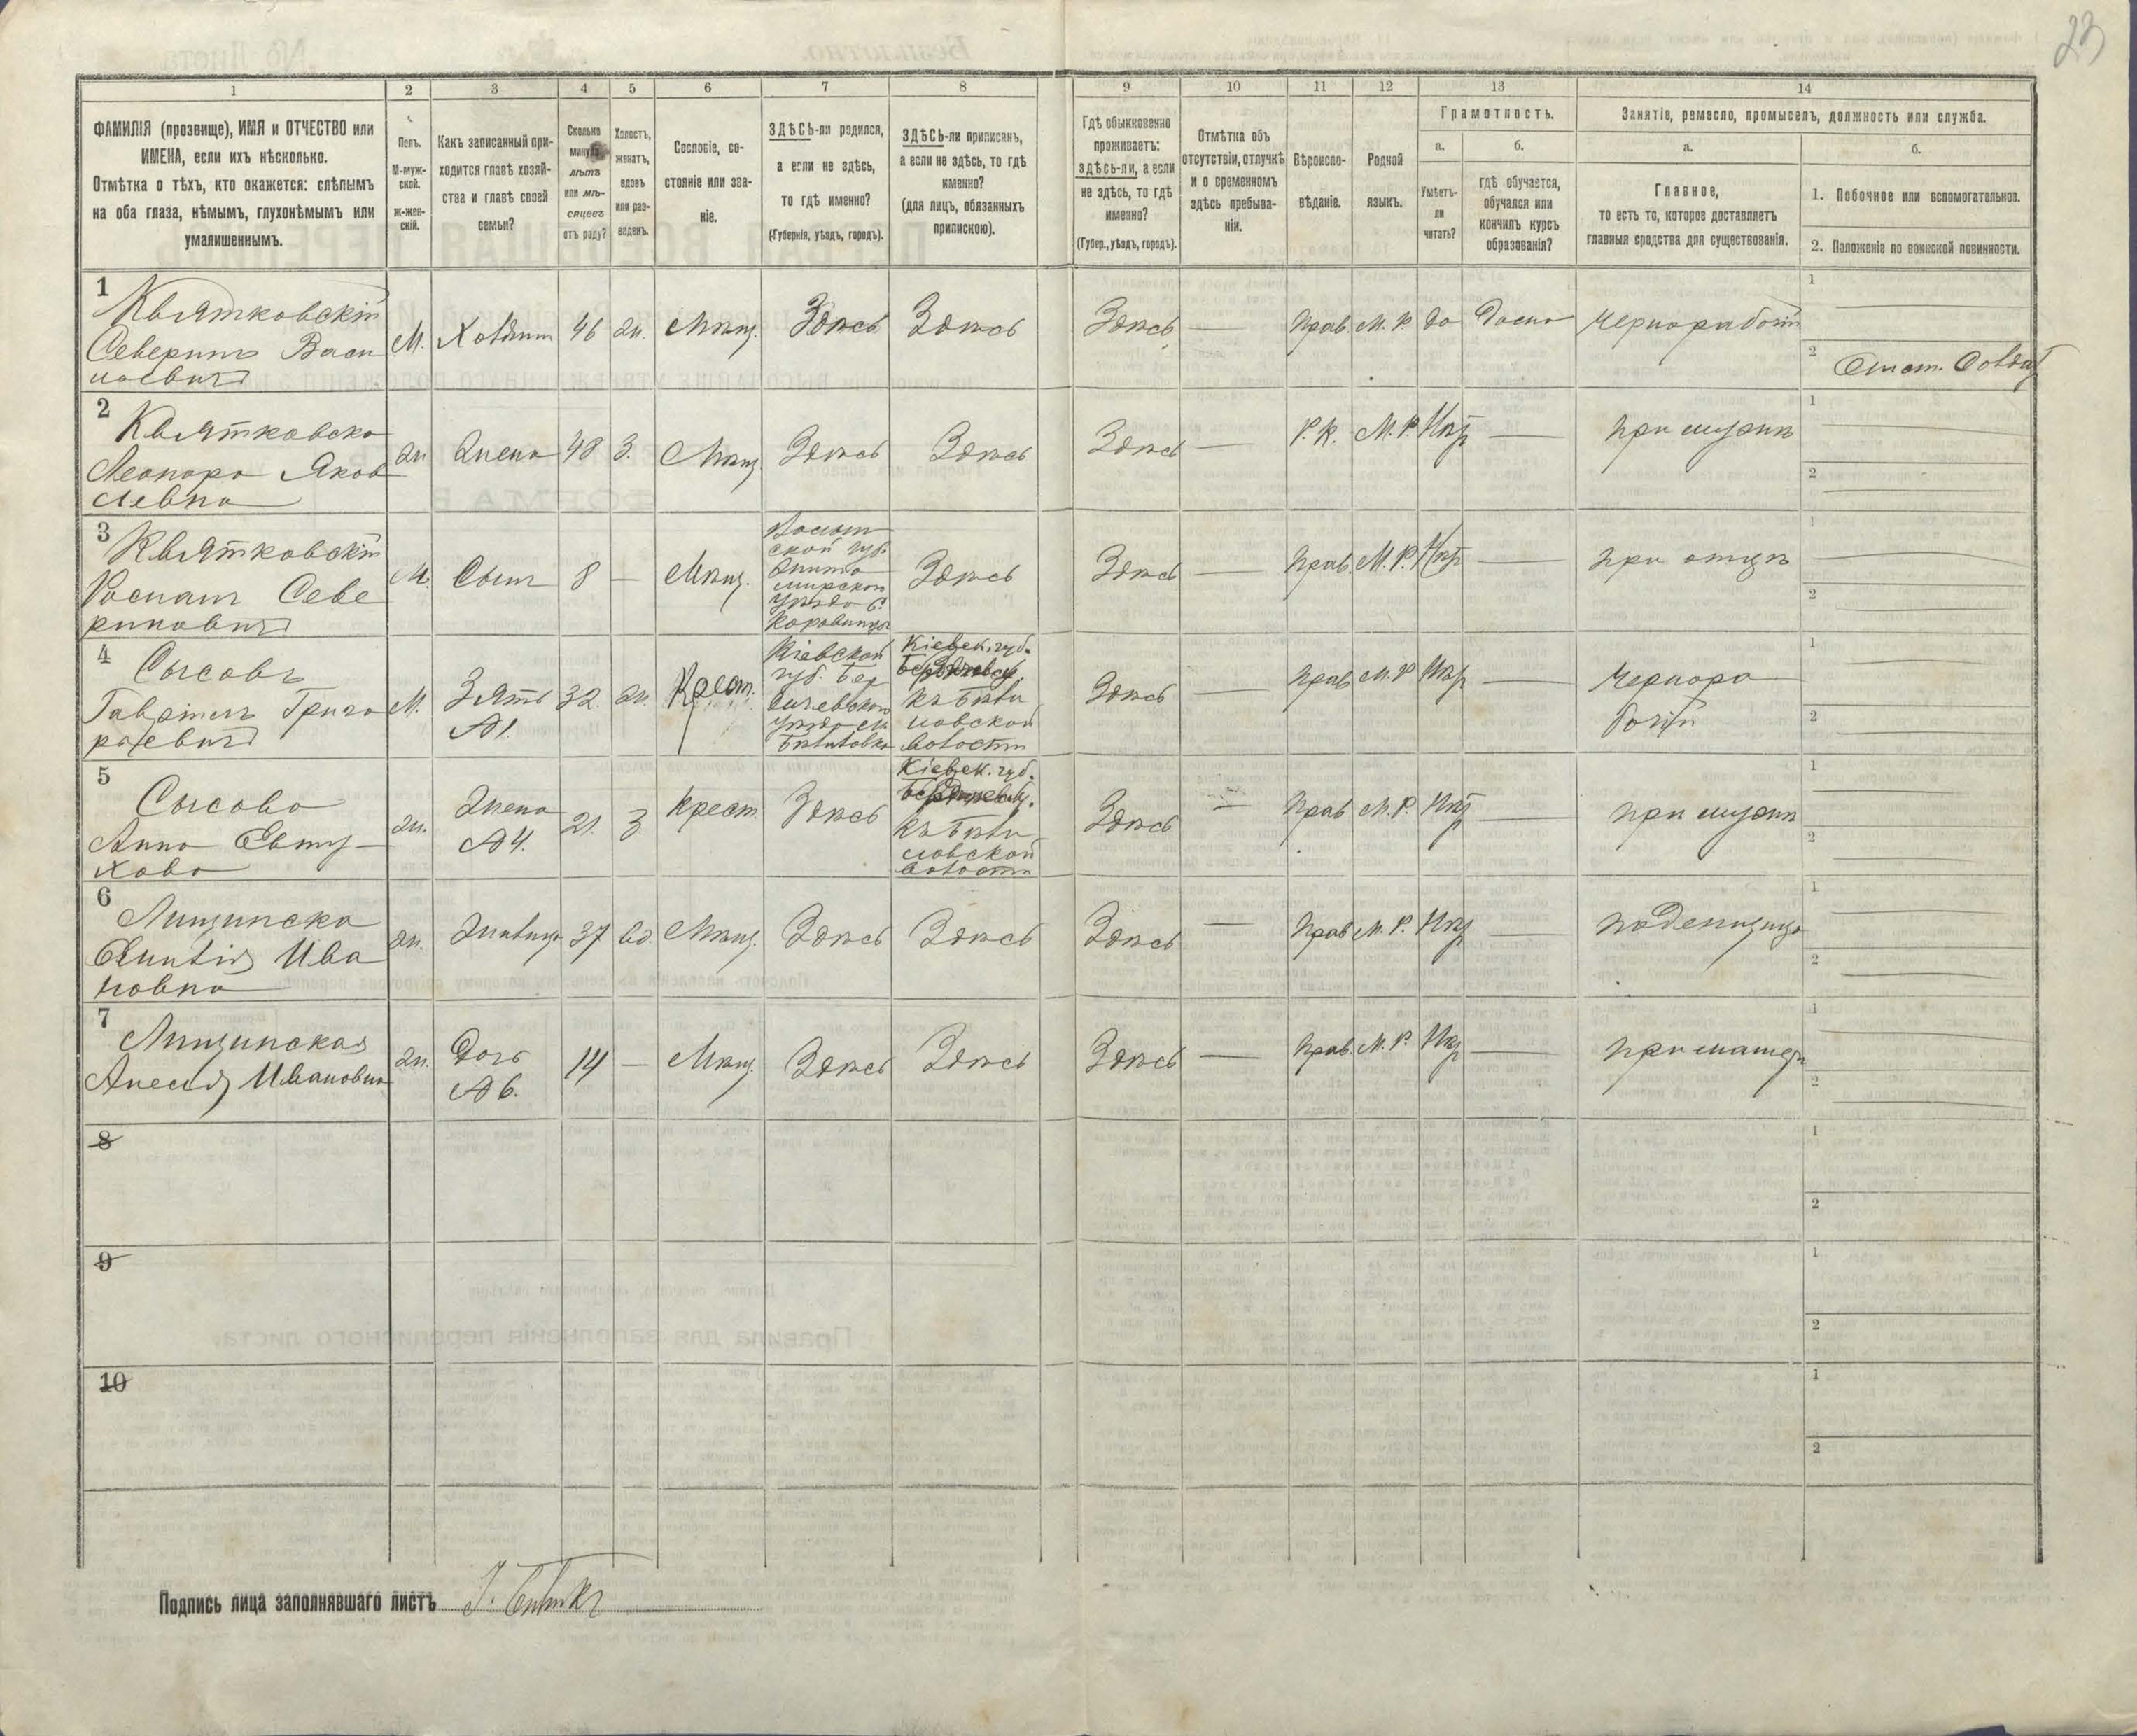 23
1 2 3 4 5 6 7 8 9 10 11 12 13 14
ФАМИЛІЯ (прозвище), ИМЯ и ОТЧЕСТВО или
ИМЕНА, если ихъ нѣсколько.
Отмѣтка о тѣхъ, кто окажется: слѣпымъ
на оба глаза, нѣмымъ, глухонѣмымъ или
умалишеннымъ.
Полъ.
М-муж-
ской.
Ж-жен-
скій.
Какъ записанный при-
ходится главѣ хозяй-
ства и главѣ своей
семьи?
Сколько
минуло
лѣтъ
или мѣ-
сяцевъ
отъ роду?
Холостъ,
женатъ,
вдовъ
или раз-
веденъ.
Сословіе, со-
стояніе или зва-
ніе.
ЗДѢСЬ-ли родился,
а если не здѣсь,
то гдѣ именно?
(Губернія, уѣздъ, городъ).
ЗДѢСЬ-ли приписанъ,
а если не здѣсь, то гдѣ
именно?
(для лицъ, обязанныхъ
припискою).
Гдѣ обыкновенно
проживаетъ:
здѣсь-ли, а если
не здѣсь, то гдѣ
именно?
(Губер., уѣздъ, городъ).
Отмѣтка объ
отсутствіи, отлучкѣ
и о временномъ
здѣсь пребыва-
ніи.
Вѣроиспо-
вѣданіе.
Родной
языкъ.
Грамотность.
а.
Умѣетъ-
ли
читать?
б.
гдѣ обучается,
обучался или
кончилъ курсъ
образованія?
Занятіе, ремесло, промыселъ, должность или служба.
а.
Главное,
то есть то, которое доставляетъ
главныя средства для существованія.
б.
1. Побочное или вспомогательное.
2. Положеніе по воинской повинности.
1
Квятковскій
Северинъ Васи
М. Хозяин 46 ж. Мѣщ. Здѣсь Здѣсь Здѣсь — Прав. М. Р. да Дома
1
2
2
Квятковска
Леонора Яков
левна
ж Жена 48 З. Мѣщ. Здѣсь Здѣсь Здѣсь — Р. К. М. Р. Нѣт — при мужѣ
1
2
3
Квятковскій
Севе
риновичъ
М. Сынъ 8 — Мѣщ.
Волын
ской губ.
Жито
мирскаго
уѣзда с.
Здѣсь Здѣсь — Прав. М. Р. Нѣт — при отцѣ
1
2
4
Сысовъ
Гавріилъ Григо
рьевичъ
М. Зять
№1. 32. ж. Крест.
Кіевской
губ. Бер
дичевскаго
уѣзда
Кіевск. губ.
волости
Здѣсь — Прав М. Р Нѣт — Чернора
бочій
1
2
5
Сысова
Анна Евту
хова
ж. Жена
№4. 21. З. Крест. Здѣсь
Кіевск. губ.
волости
Здѣсь — Прав М. Р. Нѣт — при мужѣ
1
2
6
Лищинска
Ива
новна
ж. Жилица 37 вд. Мѣщ. Здѣсь Здѣсь Здѣсь — Прав М. Р. Нѣт — Поденщица
1
2
7
Лищинская
Ивановна
ж. Дочь
№6. 14 — Мѣщ. Здѣсь Здѣсь Здѣсь — Прав. М. Р. Нѣт — при матери
1
2
8
1
2
9
1
2
10
1
2
Подпись лица заполнявшаго листъ